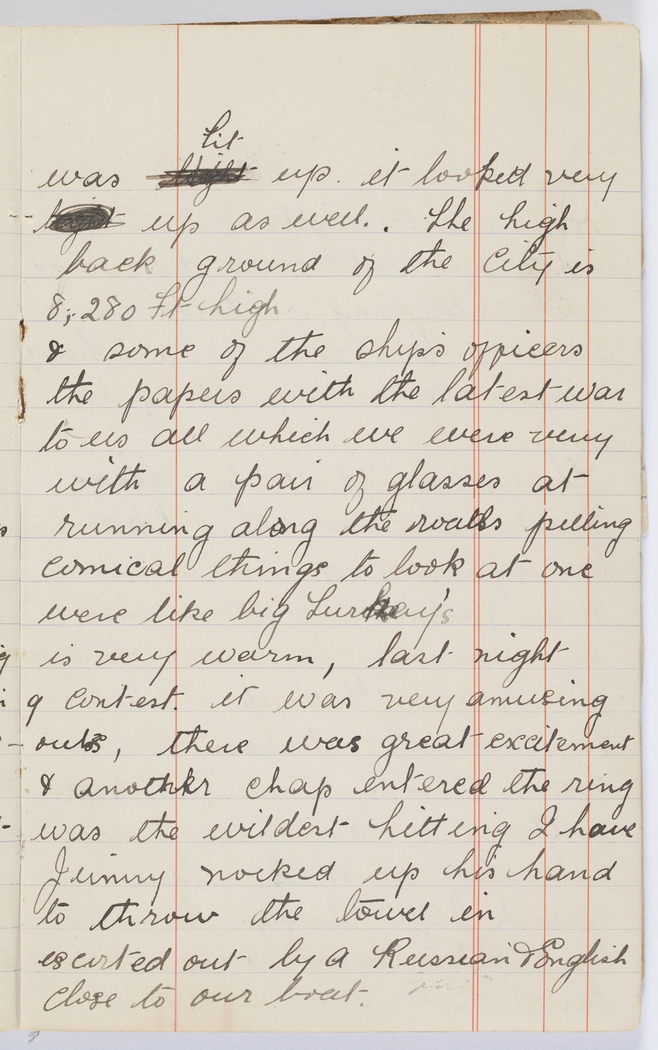 lit
was up. it looked very
up as well.. The high
back ground of the City is
8,280 Ft high
& some of the ships officers
the papers with the latest war
to us all which we were very
with a pair of glasses at
running along the roads pulling
comical things to look at one
were like big Turkey's
is very warm, last night
g contest. it was very amusing
outs, there was great excitement
& another chap entered the ring
was the wildest hitting I have
Jimmy nocked up his hand
to throw the towel in
escorted out by a Russian & English
close to our boat.